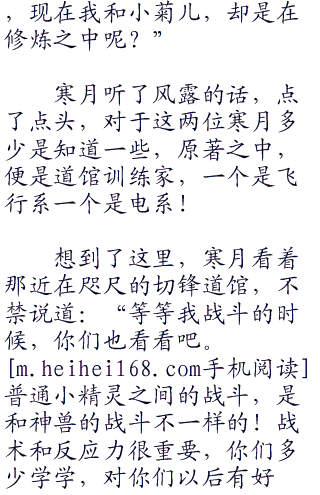 ，现在我和小菊儿，却是在
修炼之中呢？”
寒月听了风露的话，点
了点头，对于这两位寒月多
少是知道一些，原著之中，
便是道馆训练家，一个是飞
行系一个是电系！
想到了这里，寒月看着
那近在咫尺的切锋道馆，不
禁说道：“等等我战斗的时
候，你们也看看吧。
[m.heihei168.com手机阅读]
普通小精灵之间的战斗，是
和神兽的战斗不一样的！战
术和反应力很重要，你们多
少学学，对你们以后有好